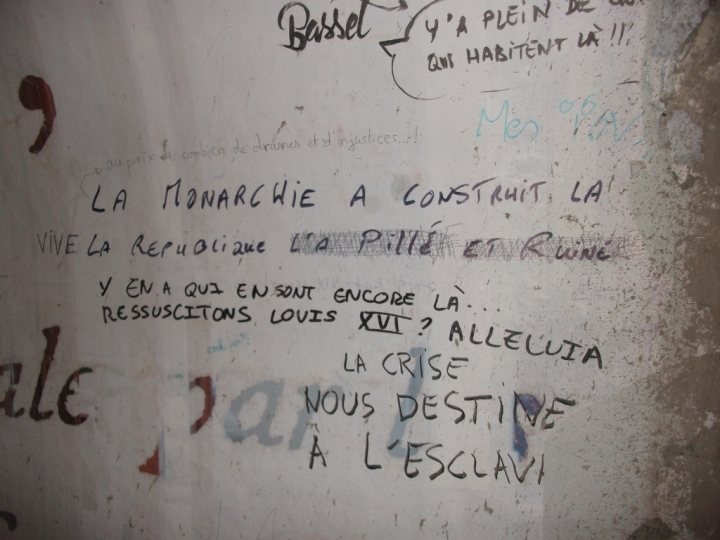 Basset
Y'A PLEIN DE
QUI HABITENT LÀ !!!
Mes
au prix de combien de drames et d'injustices...!
LA MONARCHIE A CONSTRUIT LA
VIVE LA REPUBLIQUE L'A PILLÉ ET RUINÉ
Y EN A QUI EN SONT ENCORE LÀ...
RESSUSCITONS LOUIS XVI ? ALLELUIA
LA CRISE
NOUS DESTINE
À L'ESCLAV
ale par l